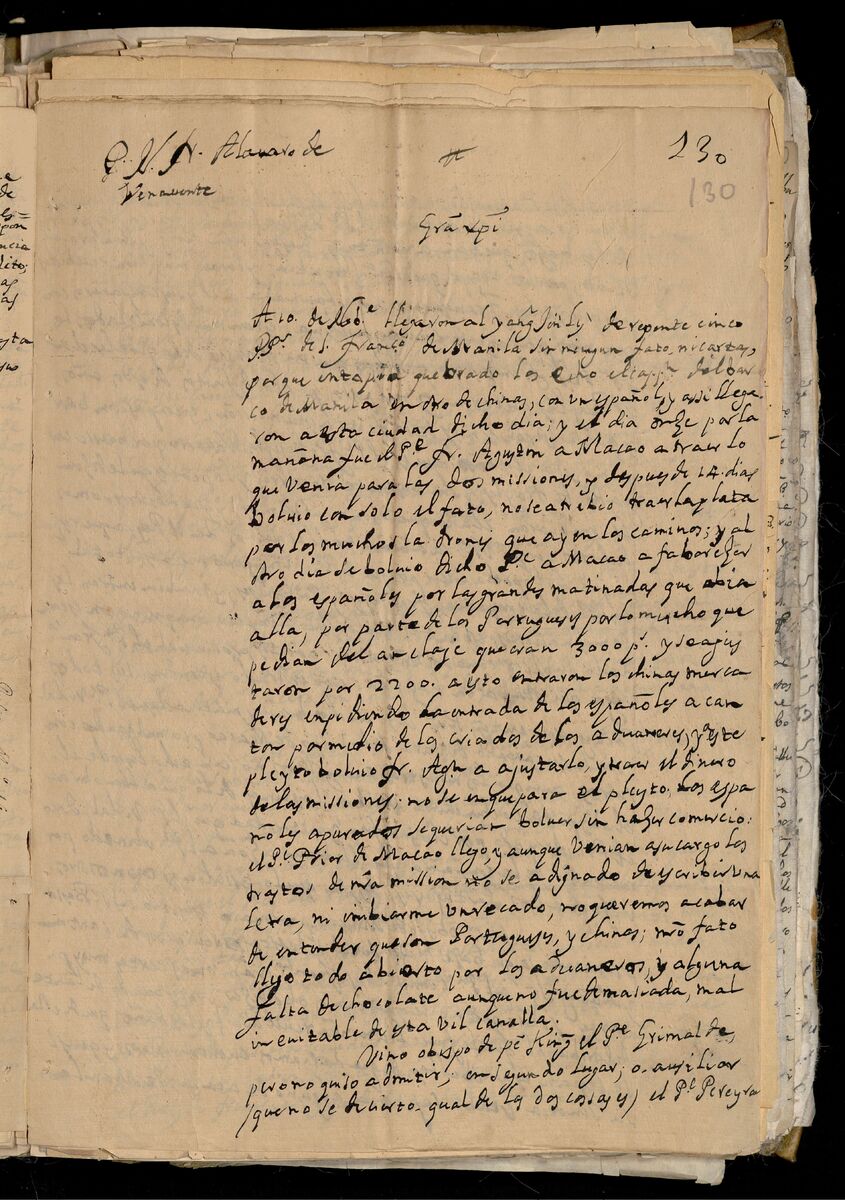 P. N. Fr. Alavaro de
Venavente
#
130
130
Grã xpĩ
A 10. de Nob.e llegaron al yang Jin ly de repente cinco
PP.s de S. Fran.co de Manila sin ningun fato, ni cartas,
porque quebrado los echo el cap.n del bar
co de Manila en otro de chinas, con un español, y assi llega
ron a esta ciudad dicho dia; y el dia onze por la
mañana fue el P.e fr. Agustin a Macao a traer lo
que venia para las dos missiones, y despues de 14 dias
bolvio con solo el fato, no se atrebio traer la plata
por los muchos ladrones que ay en los caminos; y al
otro dia se bolvio dicho P.e a Macao a faborezer
a los españoles por las grandes matinadas que abia
alla, por parte de los Portugueses por lo mucho que
pedian del anclaje que eran 3000 p.s y se ajus
taron por 2200. a esto entraron los chinas merca
deres inpidiendo la entrada de los españoles a can
ton por medio de los criados de los aduaneros, y a este
pleyto bolvio fr. Ag.n a ajustarlo, y traer el dinero
de las missiones; no se en que para el pleyto, los espa
ñoles apurados se querian bolver sin hazer comercio:
el P.e Prior de Macao llejo, y aunque venian a su cargo los
trastos de nrã mission no se a dignado de escribir una
letra, ni imbiarme un recado, no queremos acabar
de entender que son Portugueses, y chinas; nrõ fato
llejo todo abierto por los aduaneros, y alguna
falta de chocolate aunque no fue demasiada, mal
inevitable de esta vil canalla.
Vino obispo de pe King el P.e Grimalde,
pero no quiso admitir; en segundo lugar, o auxiliar
(que no se de cierto qual de las dos cossas es) el P.e Pereyra